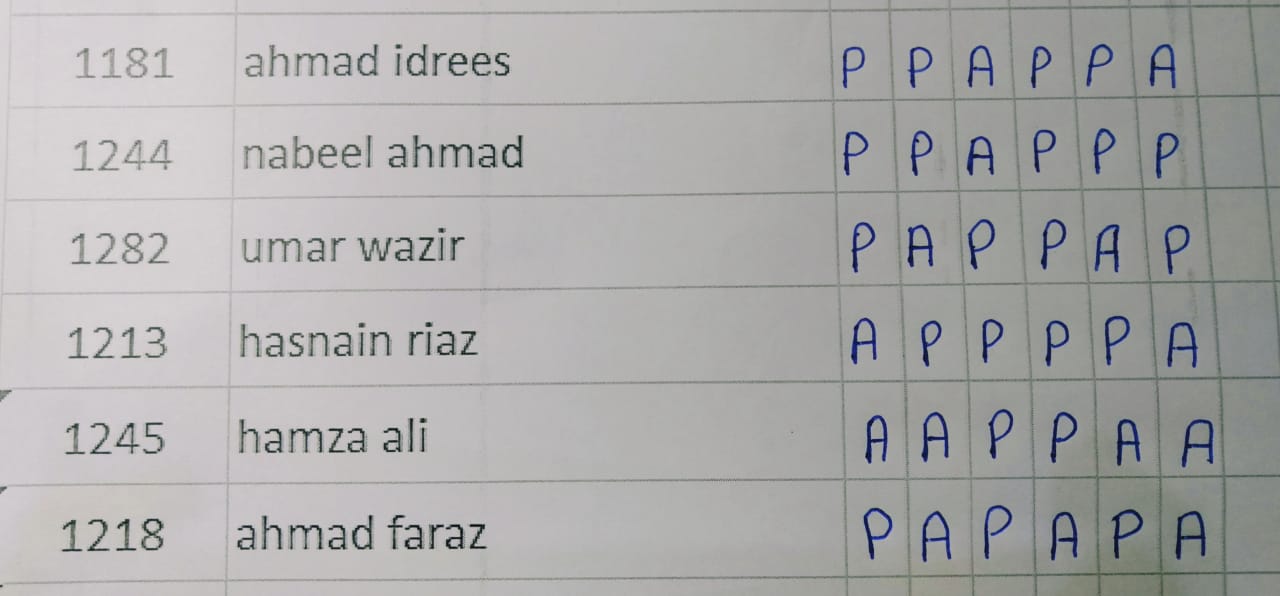 1181 ahmad idrees P P A P P A
1244 nabeel ahmad P P A P P P
1282 umar wazir P A P P A P
1213 hasnain riaz A P P P P A
1245 hamza ali A A P P A A
1218 ahmad faraz P A P A P A